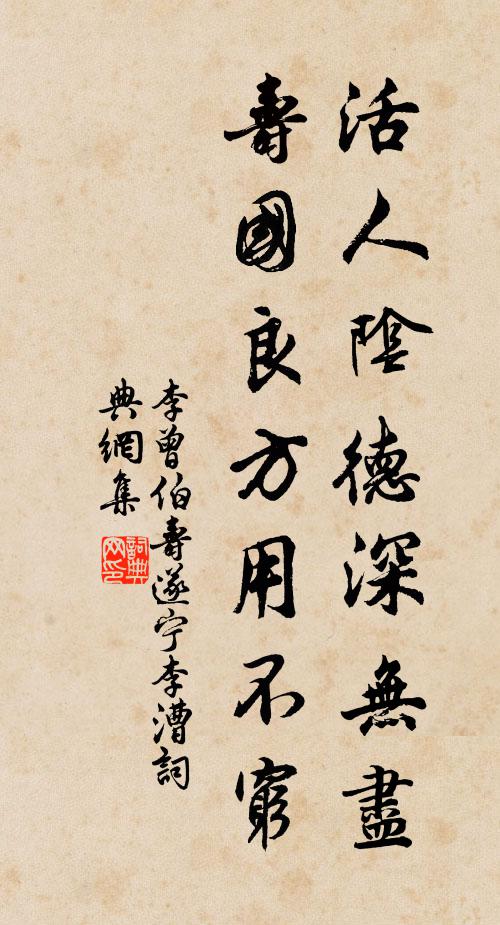 活人陰德深無盡
壽國良方用不窮
李曾伯壽遂宁李漕詞
典網集
詞典網印